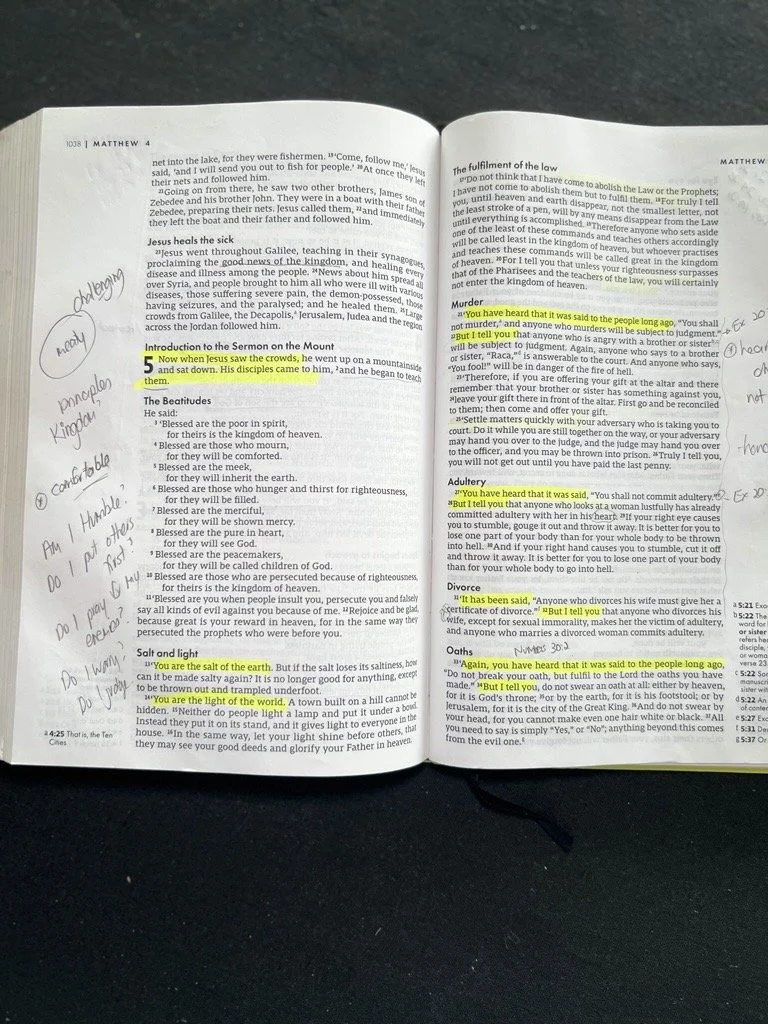 1038 | MATTHEW 4
net into the lake, for they were fishermen. 19‘Come, follow me,’ Jesus
said, ‘and I will send you out to fish for people.’ 20At once they left
their nets and followed him.
21Going on from there, he saw two other brothers, James son of
Zebedee and his brother John. They were in a boat with their father
Zebedee, preparing their nets. Jesus called them, 22and immediately
they left the boat and their father and followed him.
Jesus heals the sick
23Jesus went throughout Galilee, teaching in their synagogues,
proclaiming the good news of the kingdom, and healing every
disease and illness among the people. 24News about him spread all
over Syria, and people brought to him all who were ill with various
diseases, those suffering severe pain, the demon-possessed, those
having seizures, and the paralysed; and he healed them. 25Large
crowds from Galilee, the Decapolis,a Jerusalem, Judea and the region
across the Jordan followed him.
Introduction to the Sermon on the Mount
5 Now when Jesus saw the crowds, he went up on a mountainside
and sat down. His disciples came to him, 2and he began to teach
them.
The Beatitudes
He said:
3‘Blessed are the poor in spirit,
for theirs is the kingdom of heaven.
4Blessed are those who mourn,
for they will be comforted.
5Blessed are the meek,
for they will inherit the earth.
6Blessed are those who hunger and thirst for righteousness,
for they will be filled.
7Blessed are the merciful,
for they will be shown mercy.
8Blessed are the pure in heart,
for they will see God.
9Blessed are the peacemakers,
for they will be called children of God.
10Blessed are those who are persecuted because of righteousness,
for theirs is the kingdom of heaven.
11‘Blessed are you when people insult you, persecute you and falsely
say all kinds of evil against you because of me. 12Rejoice and be glad,
because great is your reward in heaven, for in the same way they
persecuted the prophets who were before you.
Salt and light
13‘You are the salt of the earth. But if the salt loses its saltiness, how
can it be made salty again? It is no longer good for anything, except
to be thrown out and trampled underfoot.
14‘You are the light of the world. A town built on a hill cannot be
hidden. 15Neither do people light a lamp and put it under a bowl.
Instead they put it on its stand, and it gives light to everyone in the
house. 16In the same way, let your light shine before others, that
they may see your good deeds and glorify your Father in heaven.
challenging
meaty
principles
Kingdom?
comfortable
Am I Humble?
Do I put others
first?
Do I pray 4 my
enemies?
Do I worry?
Do I
a 4:25 That is, the Ten
Cities
MATTHEW
The fulfilment of the law
17‘Do not think that I have come to abolish the Law or the Prophets;
I have not come to abolish them but to fulfil them. 18For truly I tell
you, until heaven and earth disappear, not the smallest letter, not
the least stroke of a pen, will by any means disappear from the Law
until everything is accomplished. 19Therefore anyone who sets aside
one of the least of these commands and teaches others accordingly
will be called least in the kingdom of heaven, but whoever practises
and teaches these commands will be called great in the kingdom
of heaven. 20For I tell you that unless your righteousness surpasses
that of the Pharisees and the teachers of the law, you will certainly
not enter the kingdom of heaven.
Murder
21‘You have heard that it was said to the people long ago, “You shall
not murder,a and anyone who murders will be subject to judgment.”
22But I tell you that anyone who is angry with a brother or sister
will be subject to judgment. Again, anyone who says to a brother
or sister, “Raca,” is answerable to the court. And anyone who says,
“You fool!” will be in danger of the fire of hell.
23‘Therefore, if you are offering your gift at the altar and there
remember that your brother or sister has something against you,
24leave your gift there in front of the altar. First go and be reconciled
to them; then come and offer your gift.
25‘Settle matters quickly with your adversary who is taking you to
court. Do it while you are still together on the way, or your adversary
may hand you over to the judge, and the judge may hand you over
to the officer, and you may be thrown into prison. 26Truly I tell you,
you will not get out until you have paid the last penny.
Adultery
27‘You have heard that it was said, “You shall not commit adultery.”
28But I tell you that anyone who looks at a woman lustfully has already
committed adultery with her in his heart. 29If your right eye causes
you to stumble, gouge it out and throw it away. It is better for you to
lose one part of your body than for your whole body to be thrown
into hell. 30And if your right hand causes you to stumble, cut it off
and throw it away. It is better for you to lose one part of your body
than for your whole body to go into hell.
Divorce
31‘It has been said, “Anyone who divorces his wife must give her a
certificate of divorce.” 32But I tell you that anyone who divorces his
wife, except for sexual immorality, makes her the victim of adultery,
and anyone who marries a divorced woman commits adultery.
Oaths
Numbers 30:2
33‘Again, you have heard that it was said to the people long ago,
“Do not break your oath, but fulfil to the Lord the oaths you have
made.” 34But I tell you, do not swear an oath at all: either by heaven,
for it is God’s throne; 35or by the earth, for it is his footstool; or by
Jerusalem, for it is the city of the Great King. 36And do not swear by
your head, for you cannot make even one hair white or black. 37All
you need to say is simply “Yes,” or “No”; anything beyond this comes
from the evil one.
Ex 20
not
Ex 20:
a 5:21 Exo
b 5:22 The
word for
or sister
refers he
disciple,
or woma
verse 23
c 5:22 Som
manuscri
sister wit
d 5:22 An
of conte
e 5:27 Exo
f 5:31 De
g 5:37 Or